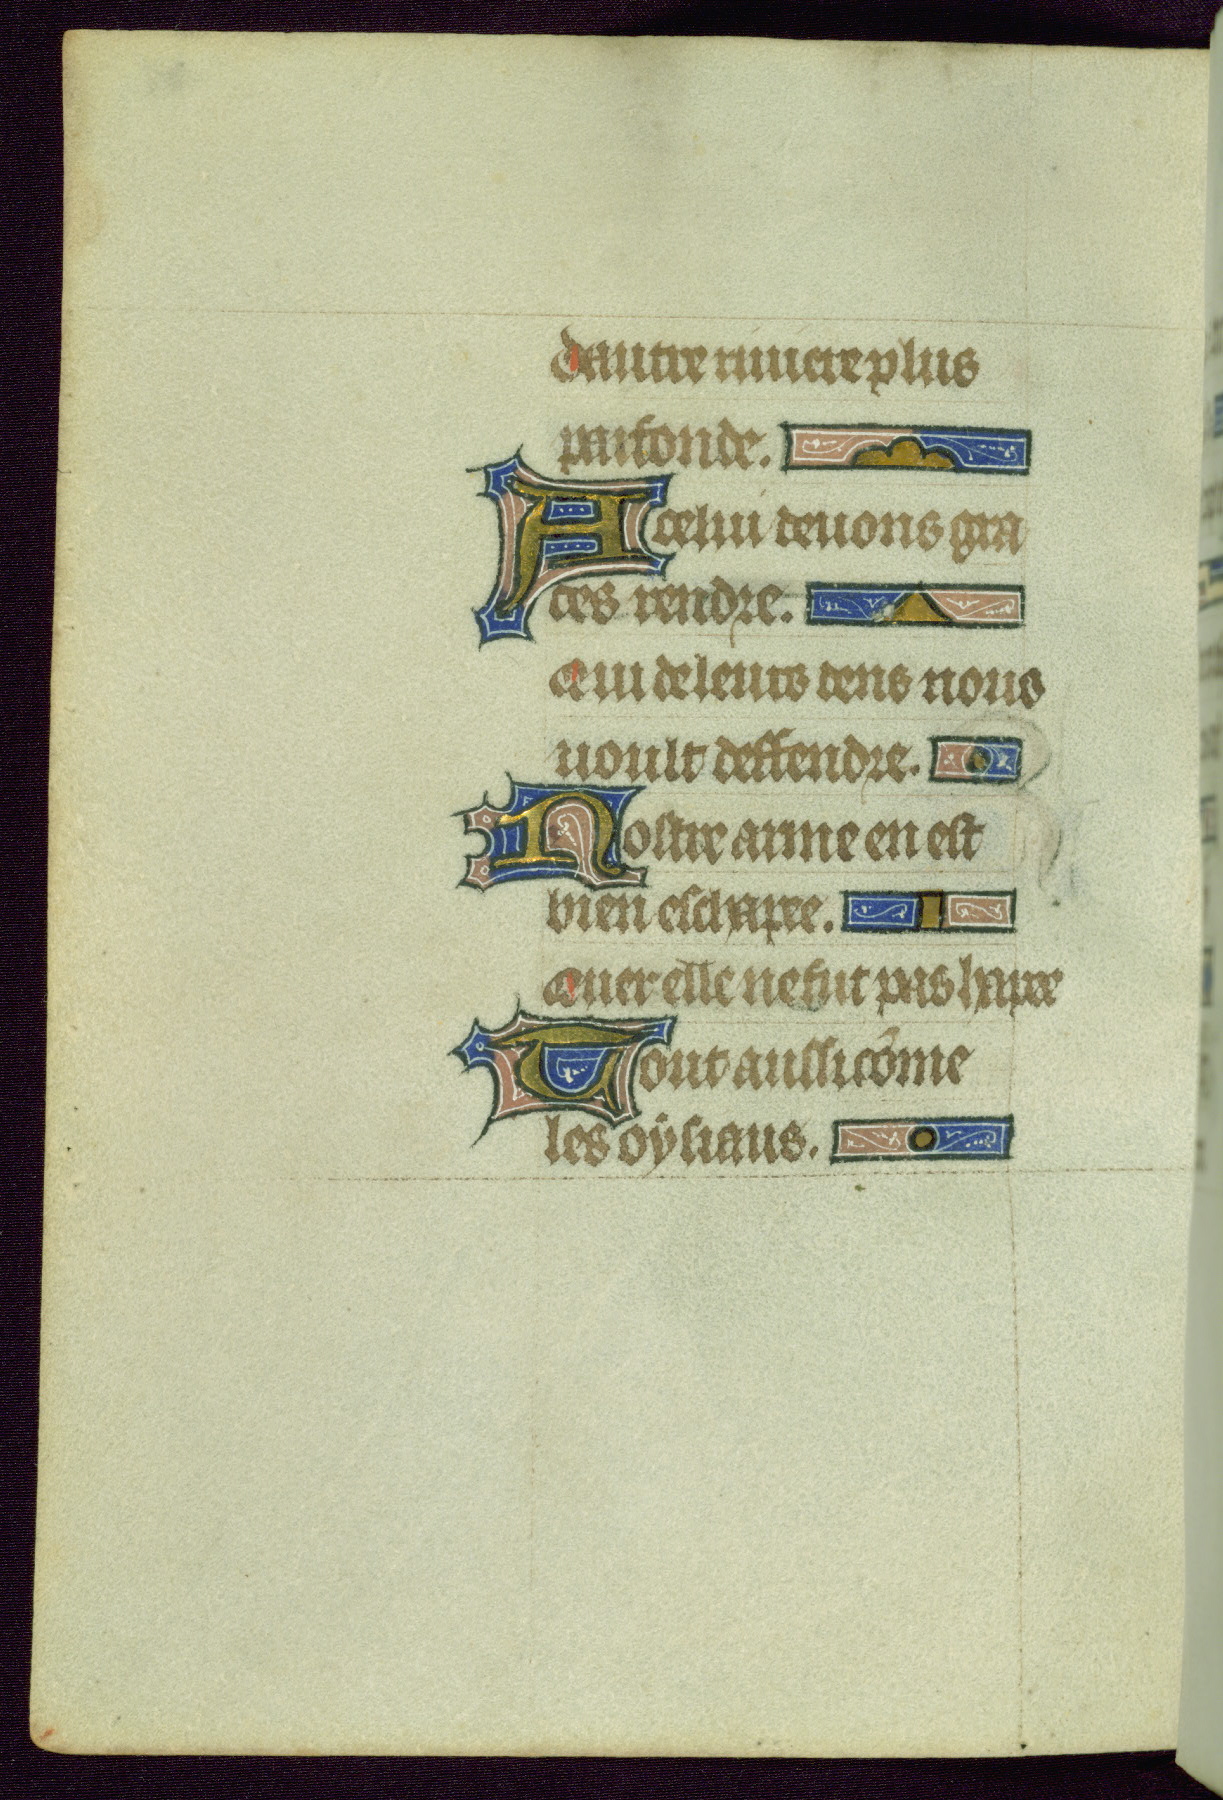 dautre riuiere plus
parfonde.
A celui deuons gra
ces rendre.
Qui de leurs dens nous
uoult deffendre.
Nostre arme en est
bien eschapee.
Quer elle ne fut pas hapee
Tout aussi cõme
les oysiaus.